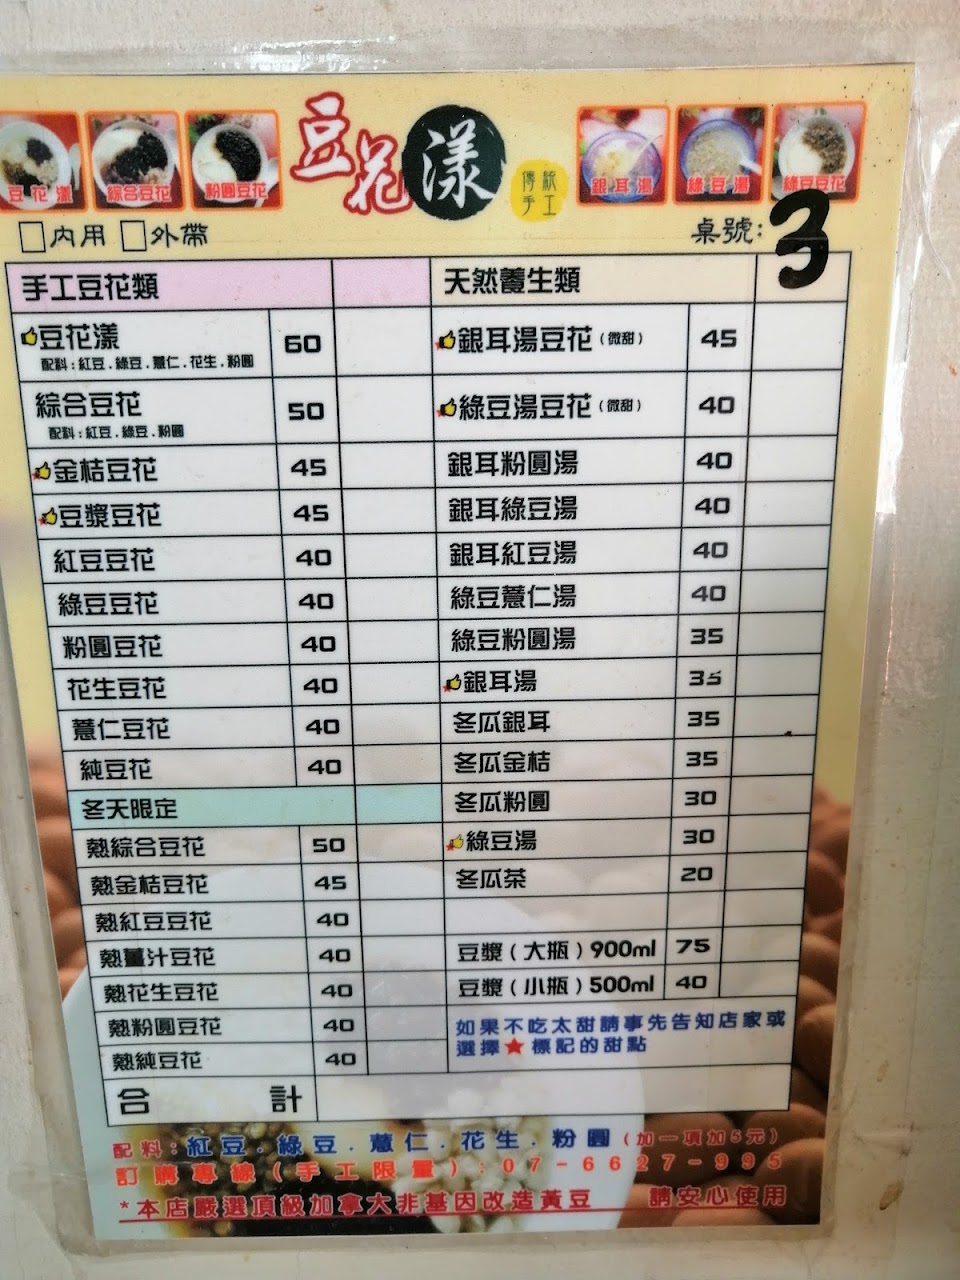 豆花漾
傳統
手工
豆花漾
綜合豆花
粉圓豆花
銀耳湯
綠豆湯
綠豆豆花
內用 外帶
桌號:3
手工豆花類
豆花漾 60
配料:紅豆.綠豆.薏仁.花生.粉圓
綜合豆花 50
配料:紅豆.綠豆.粉圓
金桔豆花 45
豆漿豆花 45
紅豆豆花 40
綠豆豆花 40
粉圓豆花 40
花生豆花 40
薏仁豆花 40
純豆花 40
冬天限定
熱綜合豆花 50
熱金桔豆花 45
熱紅豆豆花 40
熱薑汁豆花 40
熱花生豆花 40
熱粉圓豆花 40
熱純豆花 40
合計
天然養生類
銀耳湯豆花(微甜) 45
綠豆湯豆花(微甜) 40
銀耳粉圓湯 40
銀耳綠豆湯 40
銀耳紅豆湯 40
綠豆薏仁湯 40
綠豆粉圓湯 35
銀耳湯 35
冬瓜銀耳 35
冬瓜金桔 35
冬瓜粉圓 30
綠豆湯 30
冬瓜茶 20
豆漿(大瓶)900ml 75
豆漿(小瓶)500ml 40
如果不吃太甜請事先告知店家或
選擇★標記的甜點
配料:紅豆.綠豆.薏仁.花生.粉圓(加一項加5元)
訂購專線(手工限量):07-6627-995
*本店嚴選頂級加拿大非基因改造黃豆 請安心使用